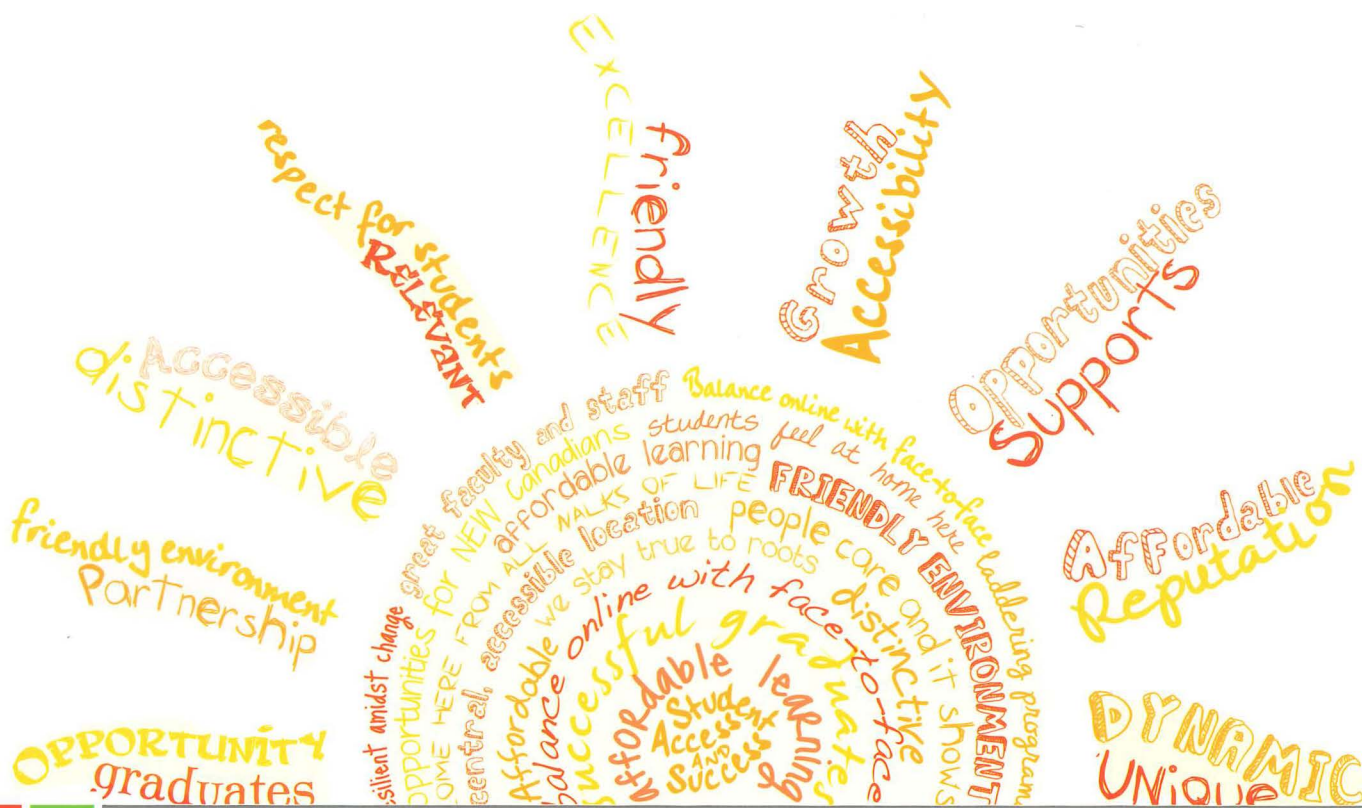 OPPORTUNITY
graduates
friendly environment
Partnership
Accessible
distinctive
respect for students
RELEVANT
EXCELLENCE
friendly
Growth
Accessibility
Opportunities
Supports
Affordable
Reputation
DYNAMIC
UNiQue
silient amidst change great faculty and staff Balance online with face-to-face laddering program
opportunities for NEW Canadians students feel at home here
OME HERE FROM ALL WALKS OF LIFE FRIENDLY ENVIRONMENT
affordable learning
central, accessible location people care and it shows
Affordable we stay true to roots distinctive
balance online with face-to-face
successful graduates
affordable learning
Student
Access
AND
Success